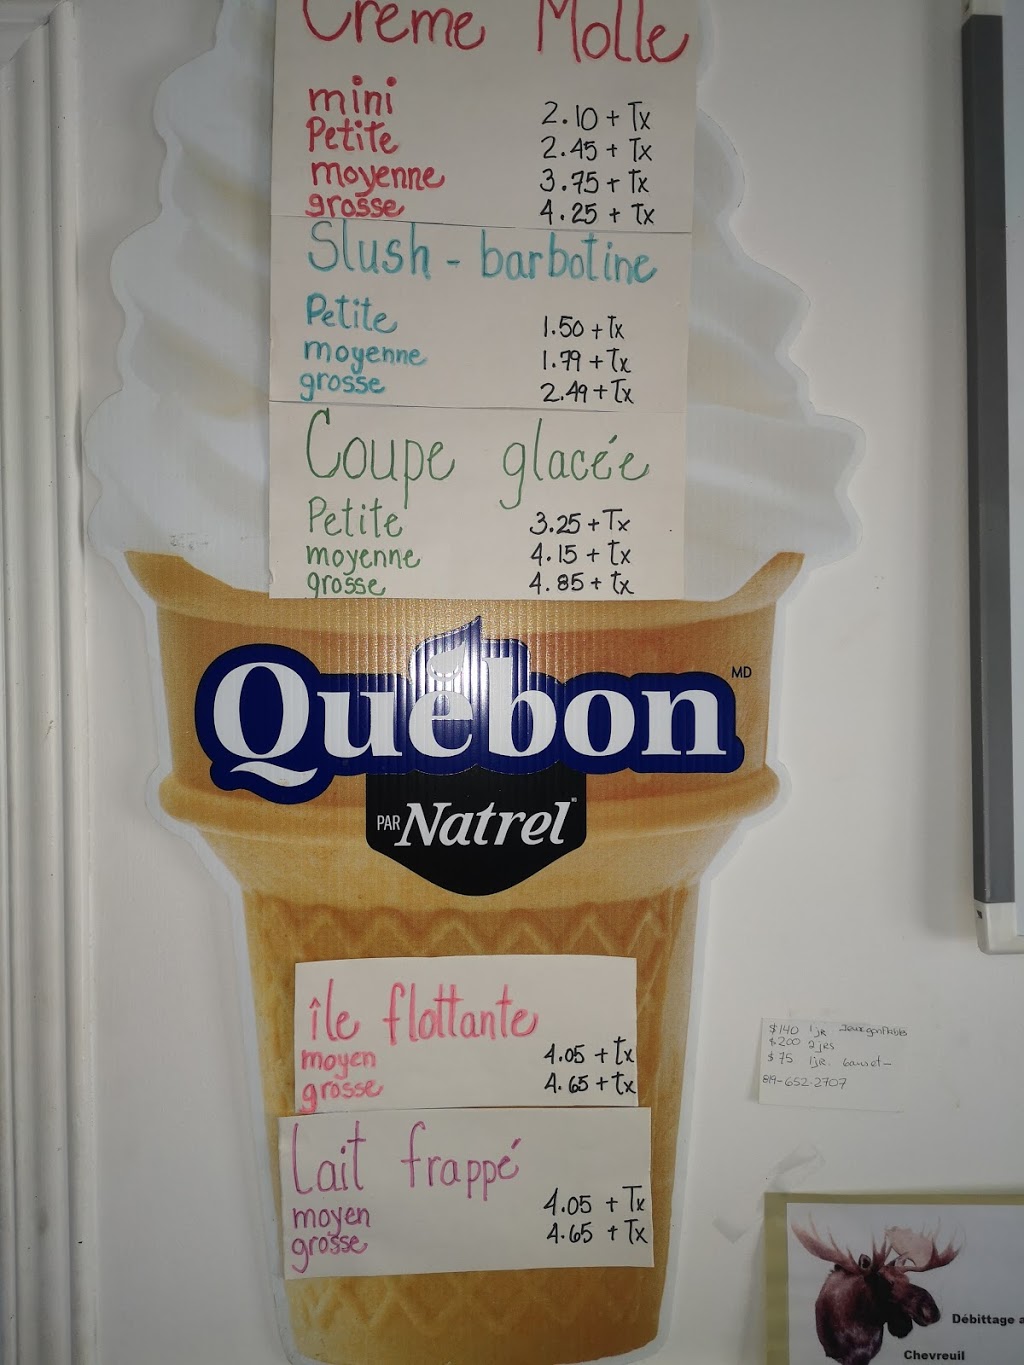 Crème Molle
mini 2.10 + Tx
Petite 2.45 + Tx
moyenne 3.75 + Tx
grosse 4.25 + Tx
Slush - barbotine
Petite 1.50 + Tx
moyenne 1.79 + Tx
grosse 2.49 + Tx
Coupe glacée
Petite 3.25 + Tx
moyenne 4.15 + Tx
grosse 4.85 + tx
Québon MD
PAR Natrel
île flottante
moyen 4.05 + Tx
grosse 4.65 + tx
Lait frappé
moyen 4.05 + Tx
grosse 4.65 + Tx
$140 1 jr
$200 2 jrs
$75 1 jr.
819-652-2707
Débittage
Chevreuil